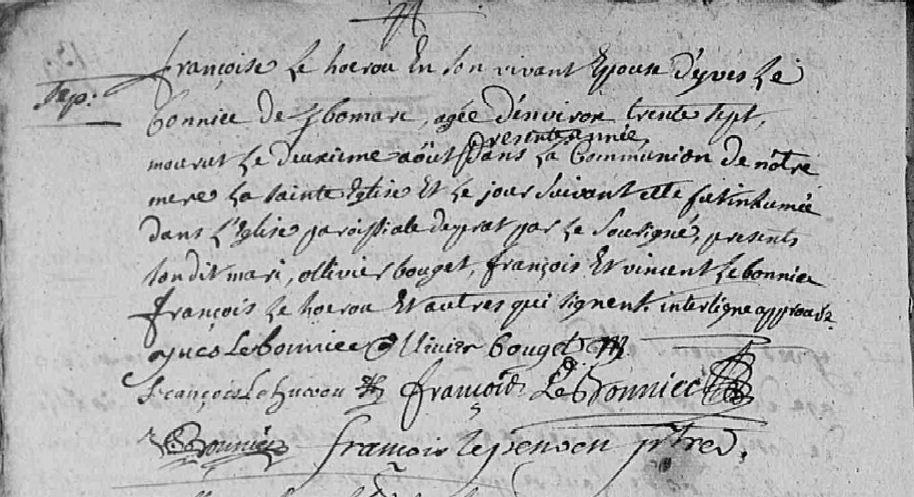 françoise Le hoerou En son vivant Epouse d'yves Le
Sep:
bonniec de agée d'environ trente sept,
presente année
mourut Le deuxieme août dans La Communion de nôtre
mere La Sainte Eglise Et Le jour Suivant elle fut inhumée
dans L'Eglise paroissiale de prat par Le Sousigné, presents
son dit mari, ollivier bouget, françois Et vincent Le bonniec
françois Le hoerou Et autres qui signent. interligne approuvé.
yves Le bonniec Ollivier bouget
françois Le hueou françois Le Bonniec
Le Bonniec françois Le penven ptre